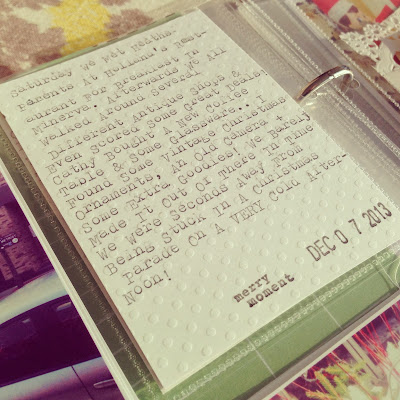 Saturday We Met Keitha-
Parents At Holland's Rest-
aurant For Breakfast In
Minerva. Afterwards We All
Walked Around Several
Different Antique Shops &
Even Scored Some Great Deals!
Cathy Bought A New Coffee
Table & Some Glassware.. I
Found Some Vintage Christmas
Ornaments, An Old Camera &
Some Extra Goodies! We Barely
Made It Out Of There In Time
We Were Seconds Away From
Being Stuck In A Christmas
Parade On A VERY Cold After-
Noon!
merry
moment
DEC 07 2013